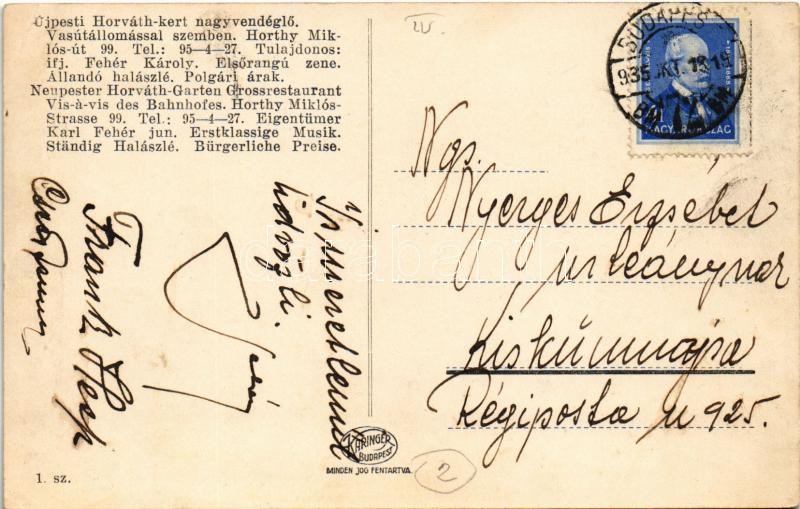 Ujpesti Horváth-kert nagyvendéglő.
Vasútállomással szemben. Horthy Mik-
lós-út 99. Tel.: 95—4—27. Tulajdonos:
ifj. Fehér Károly. Elsőrangú zene.
Állandó halászlé. Polgári árak.
Neupester Horváth-Garten Grossrestaurant
Vis-à-vis des Bahnhofes. Horthy Miklós-
Strasse 99. Tel.: 95—4—27. Eigentümer
Karl Fehér jun. Erstklassige Musik.
Ständig Halászlé. Bürgerliche Preise.
Ismeretlenül
üdvözli.
Frank
BUDAPES
935 OKT. 15
MAGYARORSZÁG
Ngs.
Nyerges Erzsébet
urleánynak
Kiskúnmajsa
Régiposta u 925.
KARINGER
BUDAPEST
MINDEN JOG FENTARTVA.
2
1. sz.
darabanth